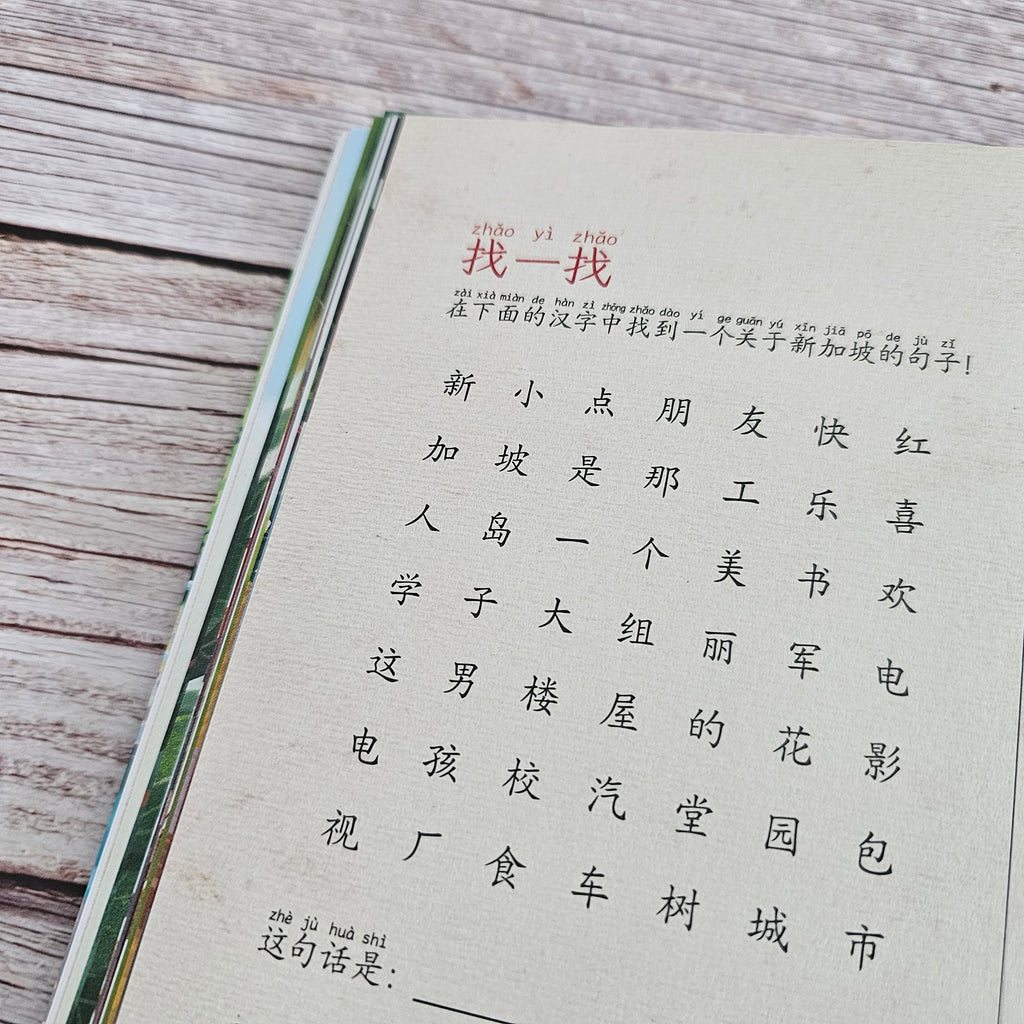 zhǎo yì zhǎo
找一找
zài xià miàn de hàn zì zhōng zhǎo dào yí ge guān yú xīn jiā pō de jù zǐ
在下面的汉字中找到一个关于新加坡的句子！
新 小 点 朋 友 快 红
加 坡 是 那 工 乐 喜
人 岛 一 个 美 书 欢
学 子 大 组 丽 军 电
这 男 楼 屋 的 花 影
电 孩 校 汽 堂 园 包
视 厂 食 车 树 城 市
zhè jù huà shì
这句话是：